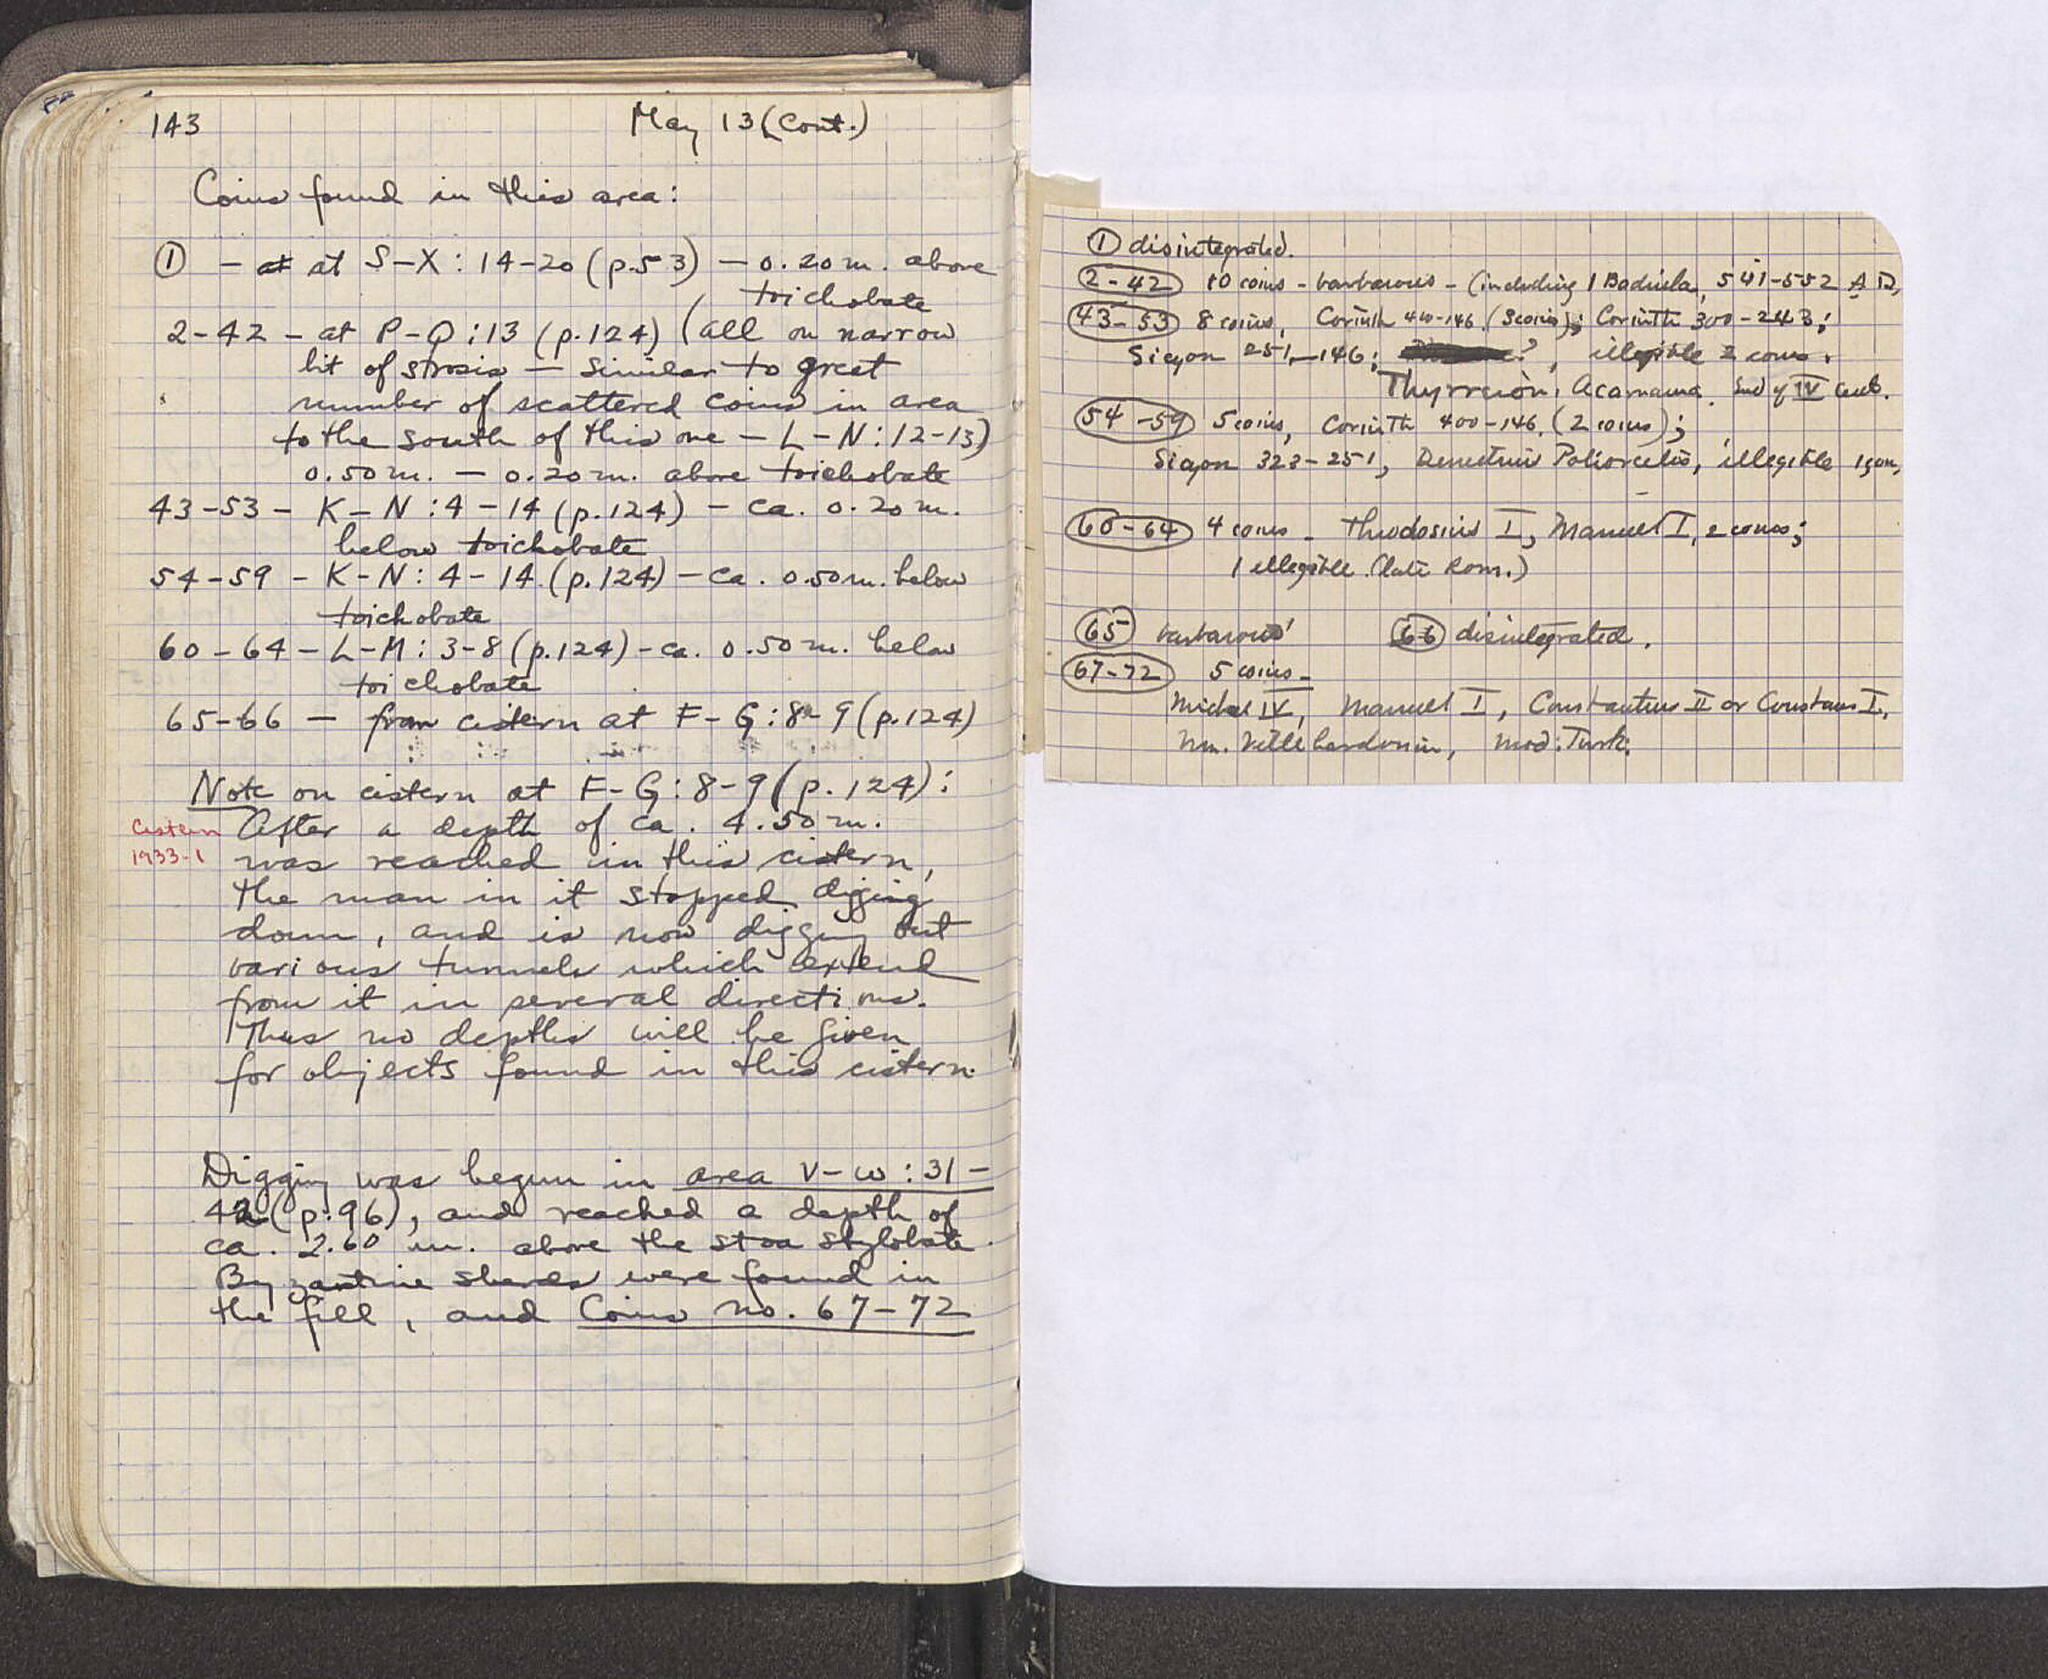 143
May 13 (Cont.)
Coins found in this area:
① - at at S-X: 14-20 (p.53) - 0.20 m. above
toichobate
2-42 - at P-Q: 13 (p.124) (all on narrow
bit of strosis - similar to great
number of scattered coins in area
to the south of this one - L-N: 12-13)
0.50 m. - 0.20 m. above toichobate
43-53 - K-N: 4-14 (p.124) - ca. 0.20 m.
below toichobate
54-59 - K-N: 4-14 (p.124) - ca. 0.50 m. below
toichobate
60-64 - L-M: 3-8 (p.124) - ca. 0.50 m. below
toichobate
65-66 - from cistern at F-G: 8-9 (p.124)
Note on cistern at F-G: 8-9 (p. 124):
Cistern
1933-1
After a depth of ca. 4.50 m.
was reached in this cistern,
the man in it stopped digging
down, and is now digging out
various tunnels which extend
from it in several directions.
Thus no depths will be given
for objects found in this cistern.
Digging was begun in area V-W: 31-
42 (p. 96), and reached a depth of
ca. 2.60 m. above the stoa stylobate.
Byzantine sherds were found in
the fill, and Coins no. 67-72
① disintegrated.
2-42 10 coins - barbarous - (including 1 Baduela, 541-552 A.D.
43-53 8 coins, Corinth 400-146 (3 coins); Corinth 300-243;
Sicyon 251-146; ?, illegible 2 coins.
Thyrreion, Acarnania. End of IV cent.
54-59 5 coins, Corinth 400-146. (2 coins);
Sicyon 323-251, Demetrius Poliorcetes, illegible 1 coin,
60-64 4 coins - Theodosius I, Manuel I, 2 coins;
1 illegible (late Rom.)
65 barbarous 66 disintegrated.
67-72 5 coins -
Michael IV, Manuel I, Constantius II or Constans I,
Wm. Villehardouin, Mod. Turk.